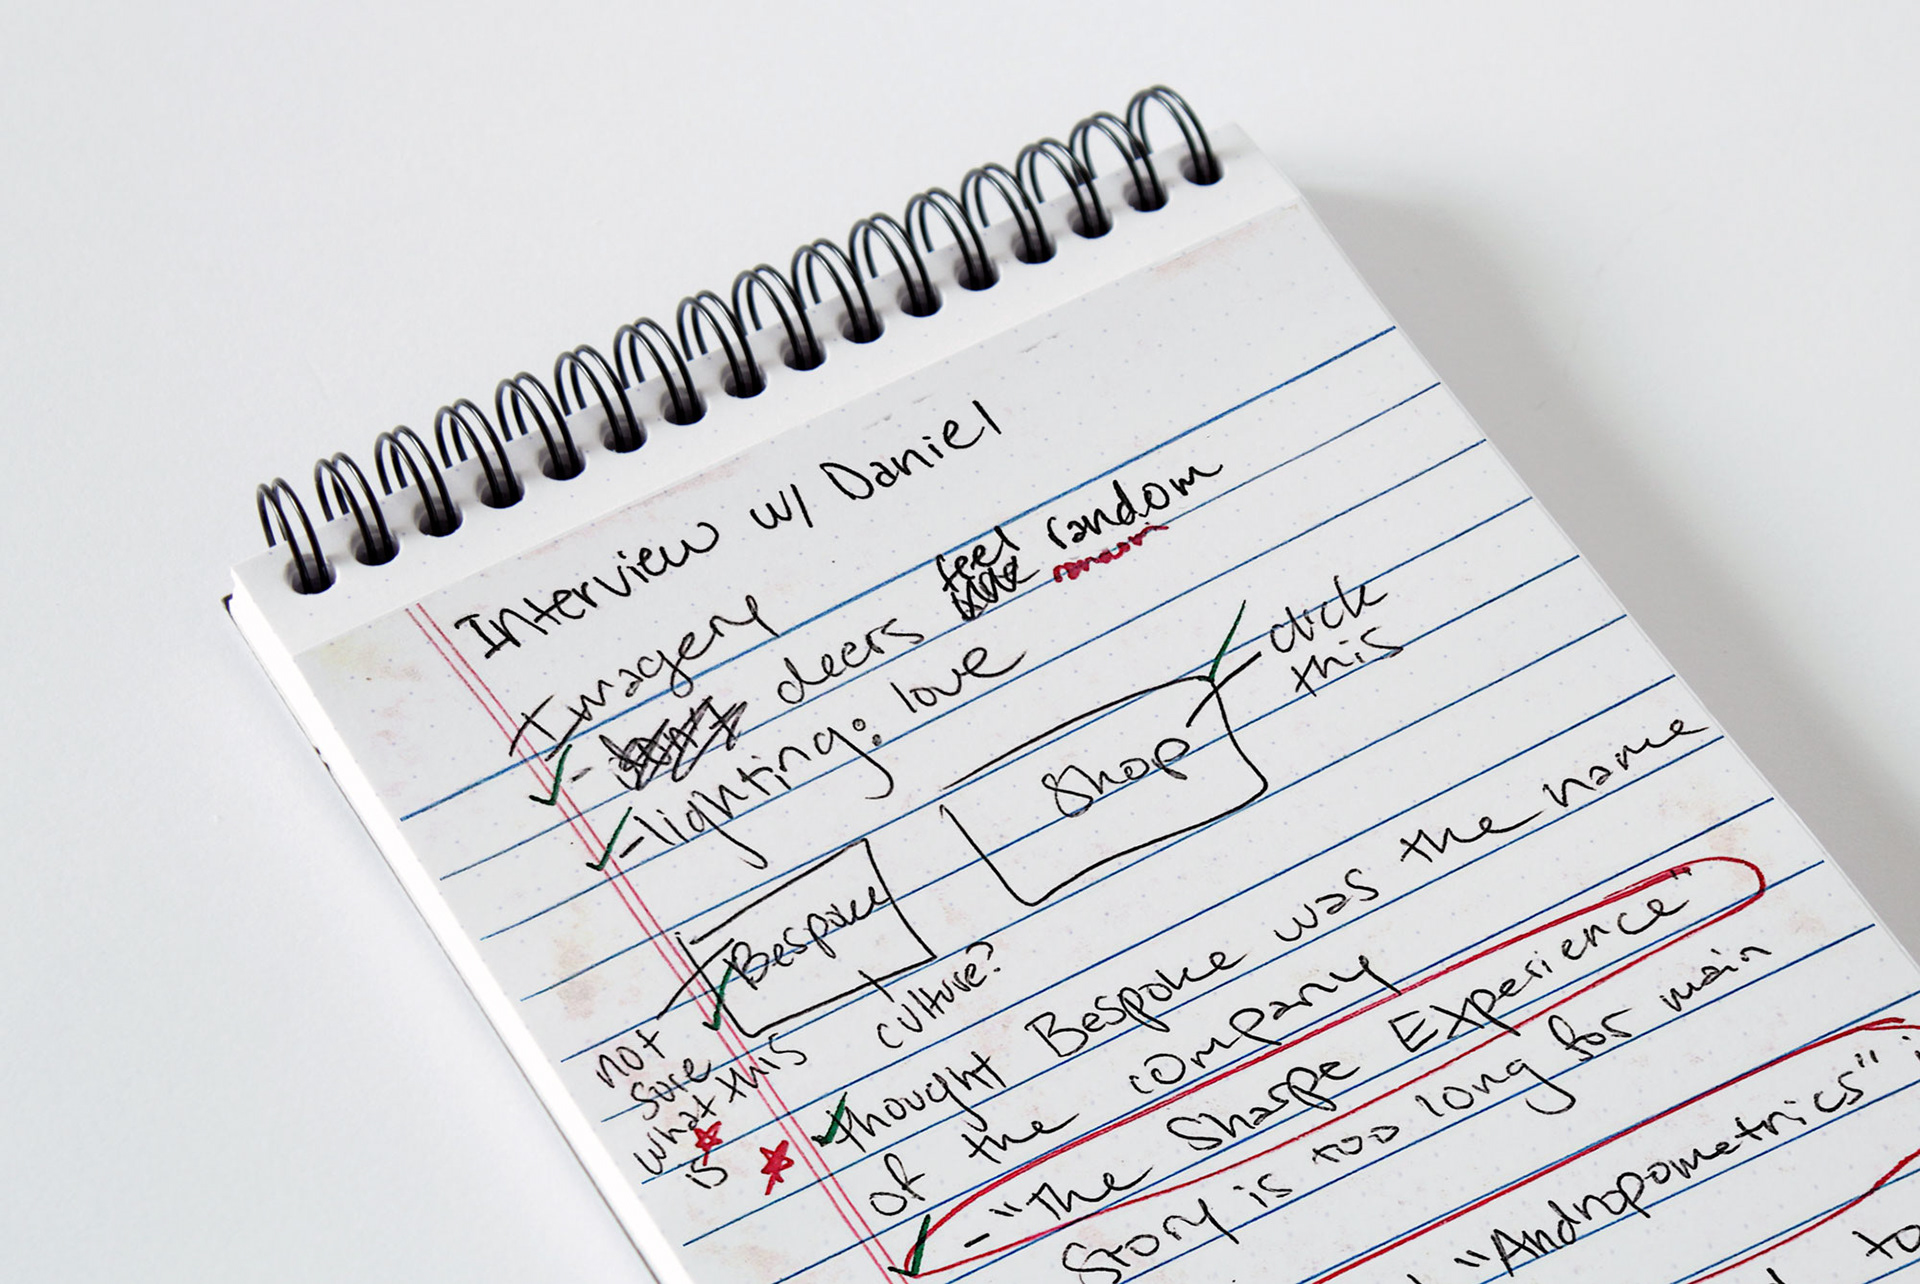 Interview w/ Daniel
Imagery
- deers feel random
- lighting: love
Shop
click
this
Bespoke
not
sure
what this
is
culture?
thought Bespoke was the name
of the company
- "The Sharpe Experience"
Story is too long for main
"Andropometrics"
to